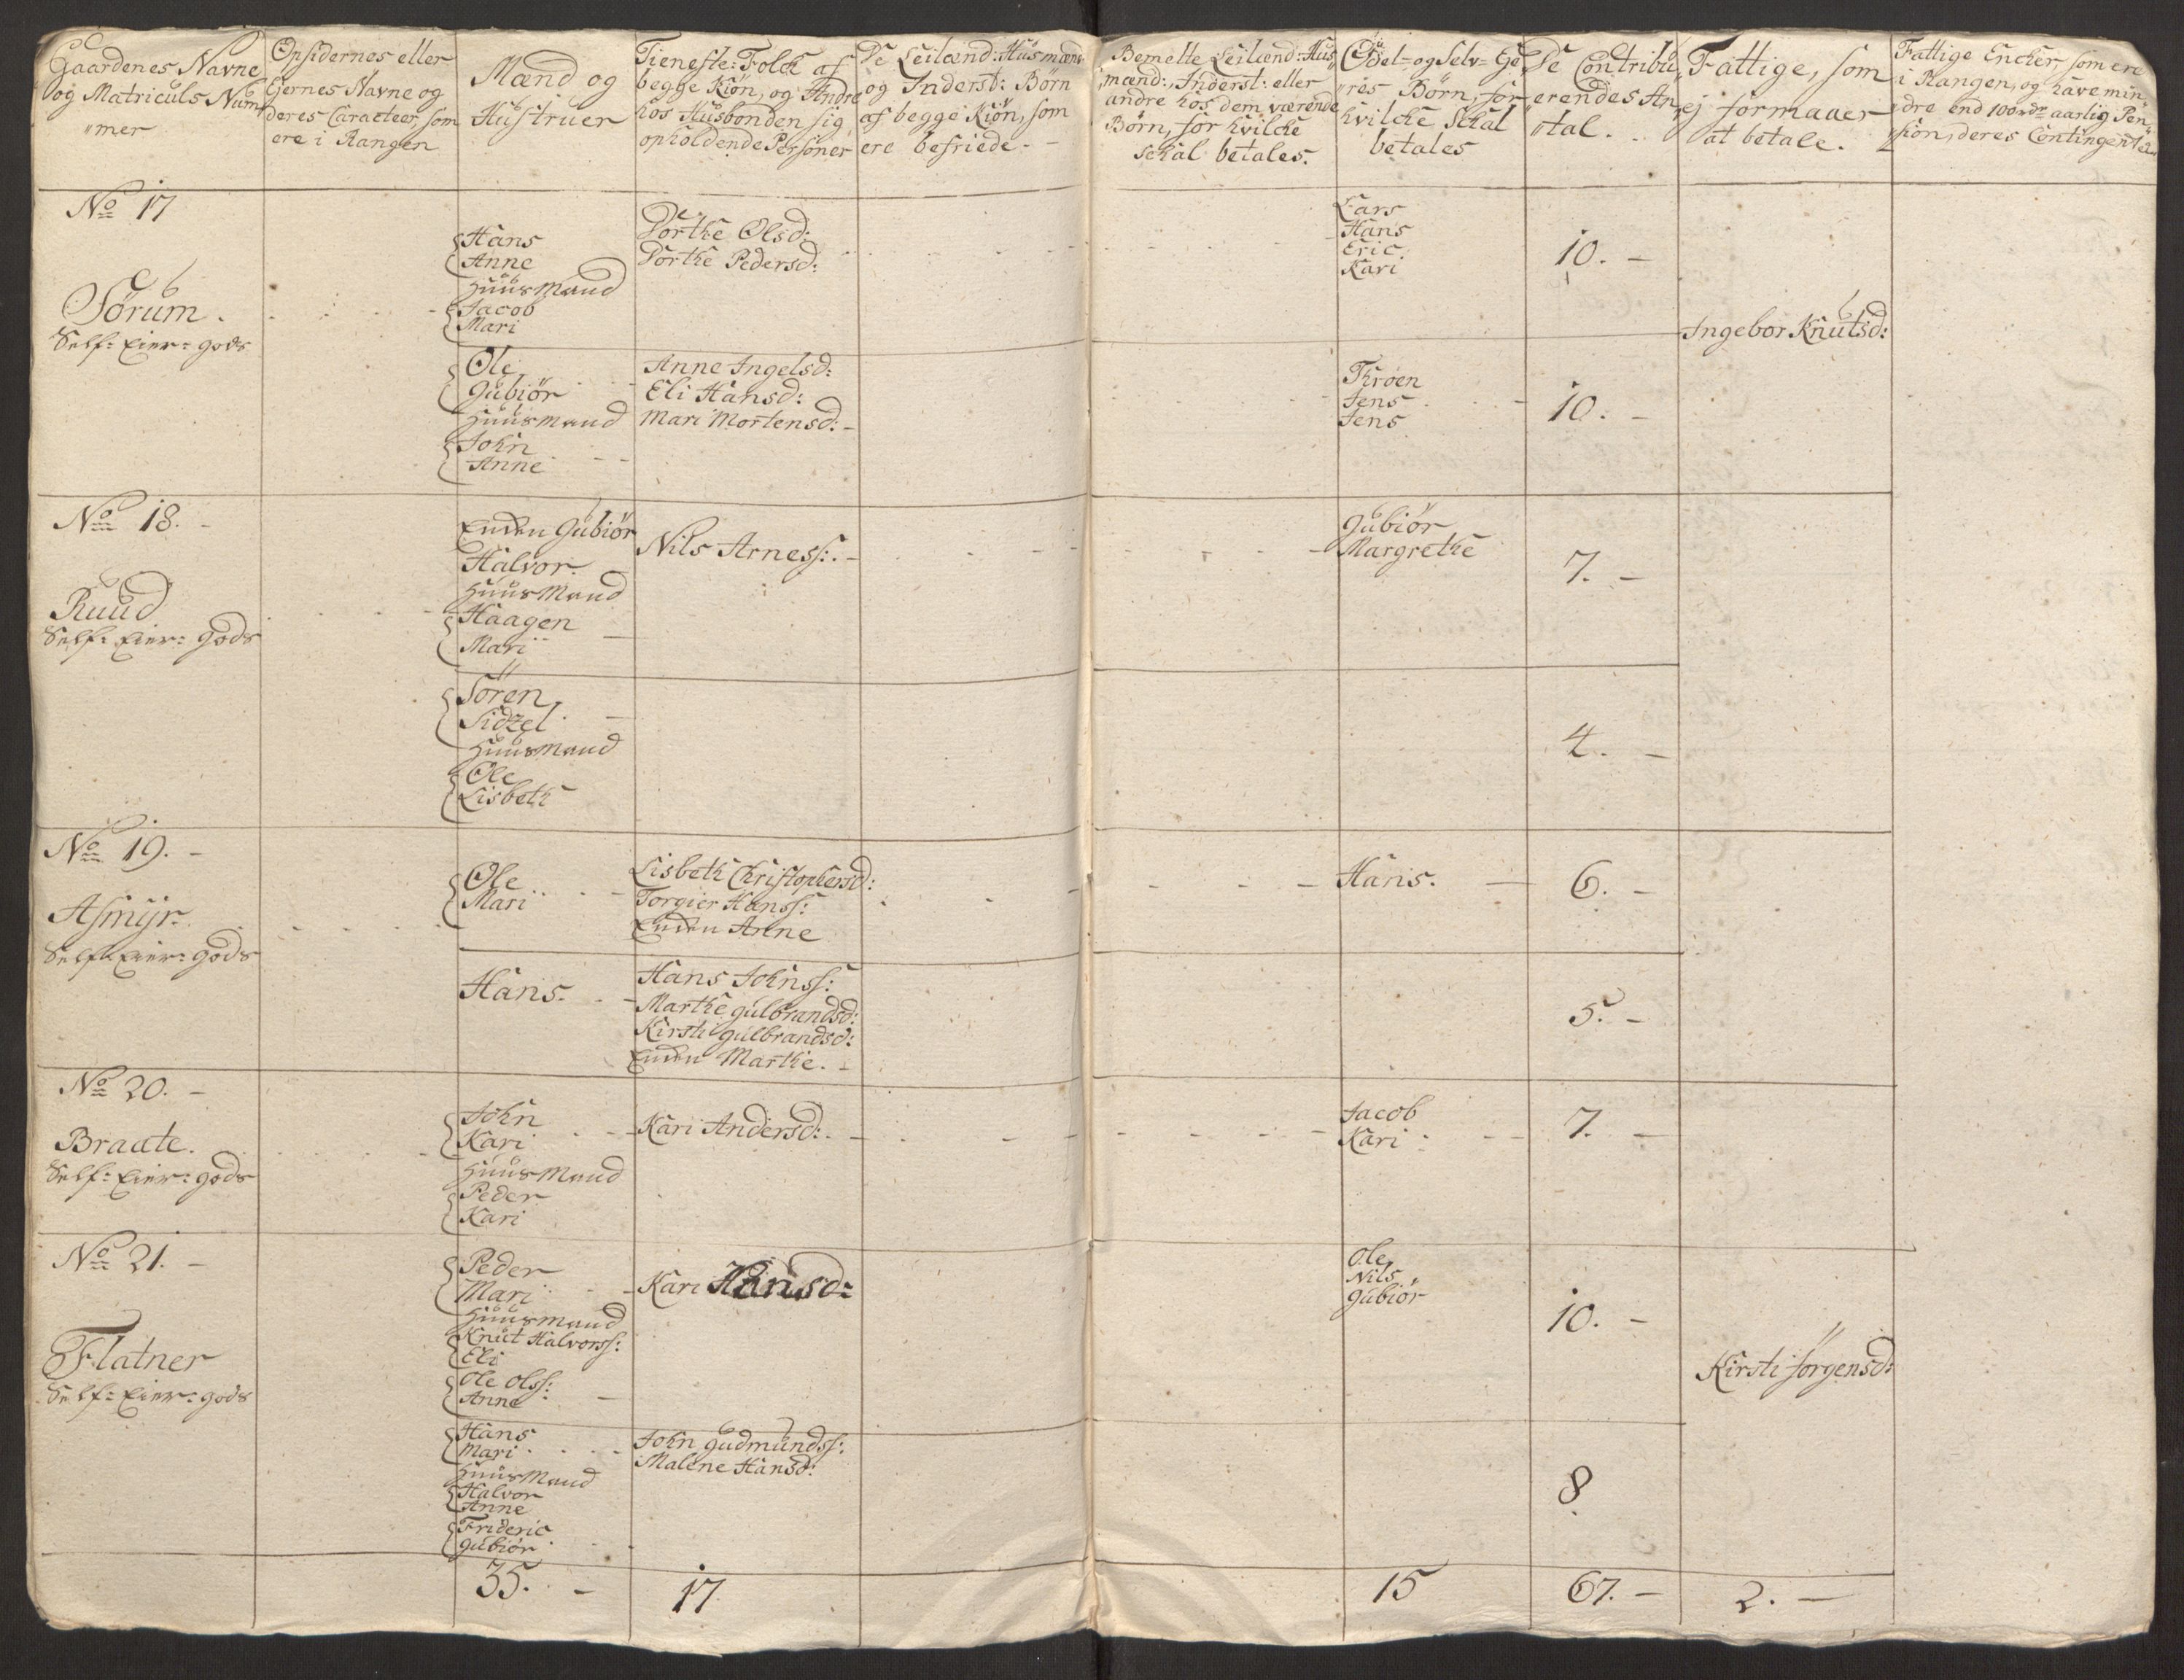 Gaardenes Navne
og Matriculs Num
mer
Opsidernes eller
Eiernes Navne og
deres Caracteer, som
ere i Rangen
Mænd og
Hustruer
Tieneste-Folck af
begge Kiøn, og Andre
hos Husbonden sig
opholdende Personer
De Leilænd: Husmænd
og Inderst: Børn
af begge Kiøn, som
ere befriede. -
Bemelte Leilænd: Hus
mænd:, Inderst: eller
andre hos dem værende
Børn, for hvilcke
skal betales.
Odel- og Selv- Ei
res Børn, for
hvilcke Skal
betales
De Contribu
erendes An
tal.
Fattige, som
ej formaaer
at betale.
Fattige Encker, som ere
i Rangen, og have min
dre end 100 rdr aarlig Pen
sion, deres Contingent
No 17
Sørum.
Self-Eier-gods
Hans
Anne
Huusmand
Jacob
Mari
Dorthe Olsd:
Dorthe Pedersd:
Lars
Hans
Eric.
Kari
10. -
Ingebor Knutsd:
Ole
Gubiør
Huusmand
John
Anne
Anne Ingelsd:
Eli Hansd:
Mari Mortensd: -
Throen
Jens
Jens
10. -
No 18. -
Ruud
Self-Eier-gods
Encken Gubiør
Halvor
Huusmand
Haagen
Mari
Nils Arness:. -
Gubiør
Margrethe
7. -
Søren
Sidzel
Huusmand
Ole
Lisbeth
4. -
No 19. -
Asmyr.
Self-Eier-gods
Ole
Mari
Lisbeth Christophersd:
Torgier Hanss:
Encken Anne
Hans.
6. -
Hans.
Hans Johnss:
Marthe gulbrandsd:
Kirsti gulbrandsd:
Encken Marthe. -
5. -
No 20. -
Braate.
Self-Eier-gods
John
Kari
Huusmand
Peder
Kari
Kari Andersd:
Jacob
Kari
7. -
No 21. -
Flatner
Self-Eier-gods
Peder
Mari
Huusmand
Knut Halvorss:
Eli
Ole Olss:
Anne
Kari Hansd:
Ole
Nils
Gubiør
10. -
Kirsti Jørgensd:
Hans
Mari
Huusmand
Halvor
Anne
Frideric
Gubiør
John Gudmundss:
Malene Hansd:
8
35. - 17 15 67. - 2. -